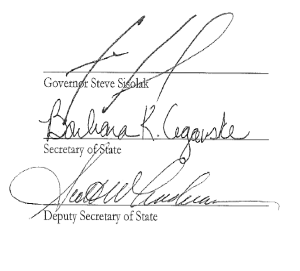 Governor Steve Sisolak
Barbara K. Cegavske
Secretary of State
Scott W
Deputy Secretary of State